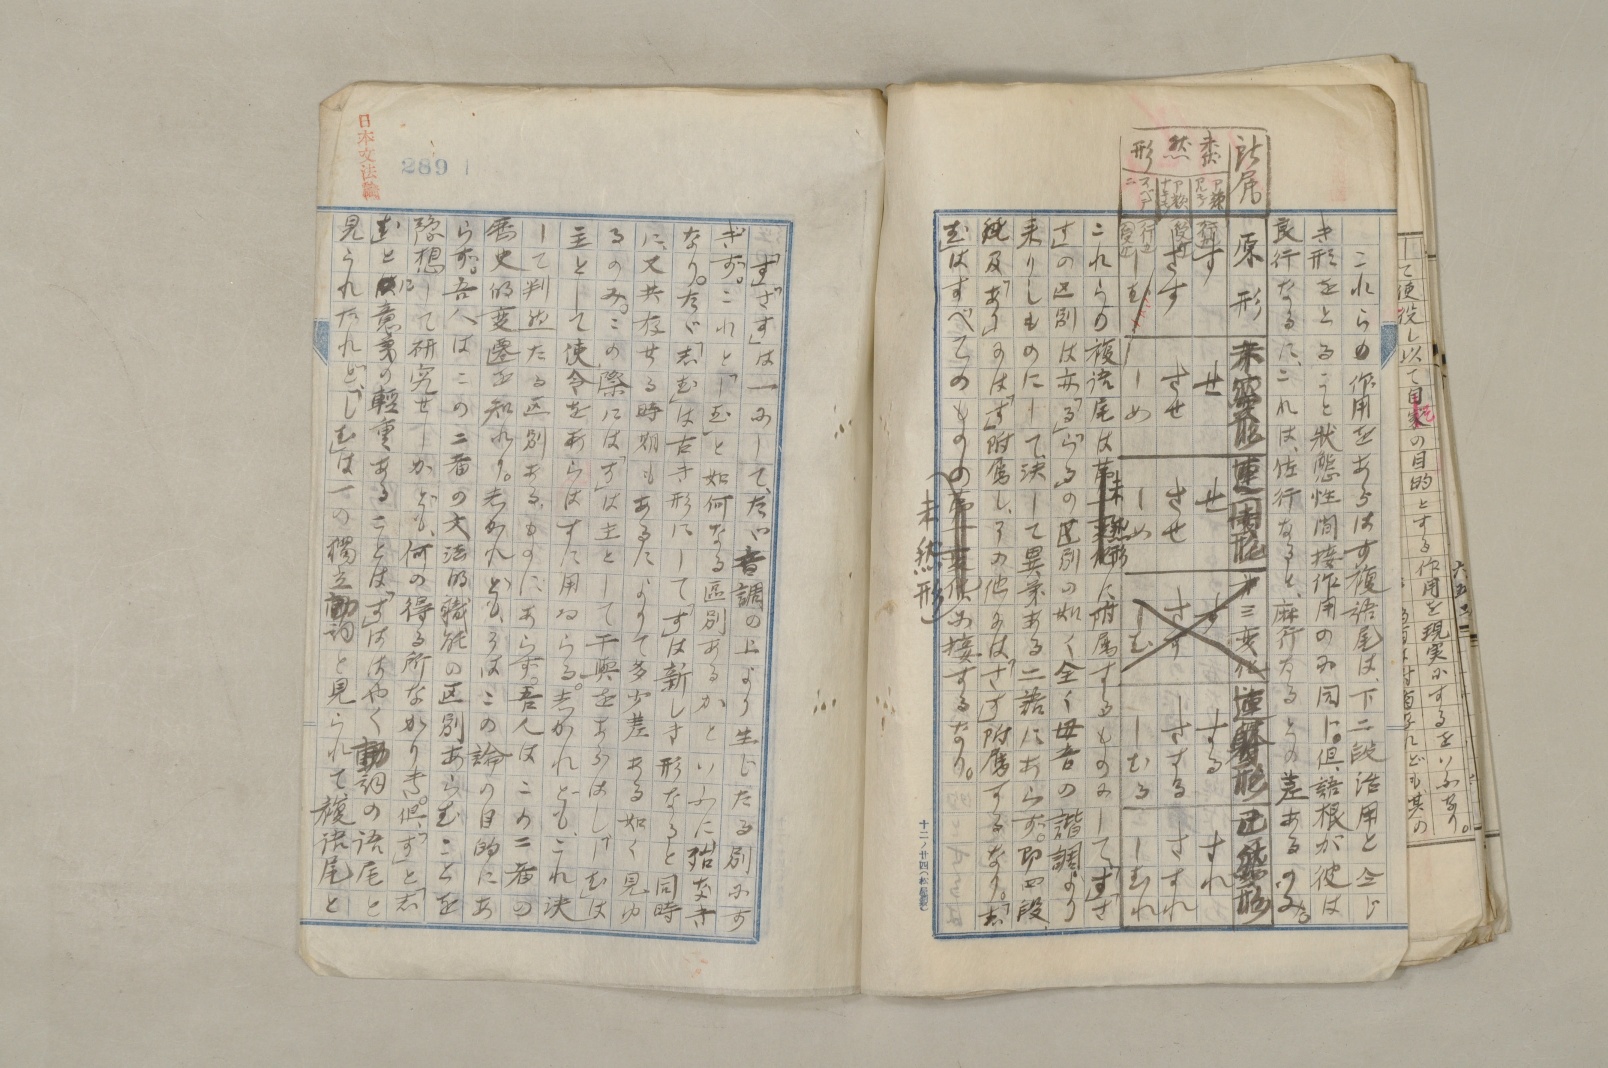 して使役し以て自家の目的とする作用を現実にするをいふなり。
これらの作用をあらはす複語尾は、下二段活用と令じ
き形をとること状態性間接作用のに同じ。但、語根が彼は
良行なるに、これは、佐行なると、麻行なるとの差あるのみ。
附属 原形 未然形 連用形 第三変化 連体形 已然形
未然形
す せ せ す する すれ
さす させ させ さす さする さすれ
しむ しめ しめ しむ しむる しむれ
これらの複語尾は未然形に附属するものにして、「す」「さ
す」の区別は亦「る」「らる」の区別の如く全く母音の諧調より
来りしものにして、決して異義ある二語にあらず。即四段、
には「す」附属し、その他には「さす」附属するなり。「し
む」はすべてのものの
(未然形)
に接するなり。
十二ノ廿四(松屋製)
日本文法論
289
「す」「さす」は一にして、たゞ音調の上より生じたる別にす
ぎず。これと「しむ」と如何なる区別あるかといふに、始なき
なり。たゞ「しむ」は古き形にして「す」は新しき形なると同時
に、又共存せる時期もあるによりて多少差ある如く見ゆ
るのみ。この際には「す」は主として干与をあらはし「しむ」は
主として使令をあらはすに用ゐらる。しかれども、これ決
して判然たる区別あるものにあらず。吾人はこの二者の
歴史的変遷を知れり。しかれども、そはこの論の目的にあ
らず。吾人はこの二者の文法的職能の区別あらむことを
予想して研究せしかども、何の得る所なかりき。但、「す」と「し
む」とに意義の軽重あることは「す」ははやく動詞の語尾と
見られたれど、「しむ」は一の独立動詞と見られて複語尾と